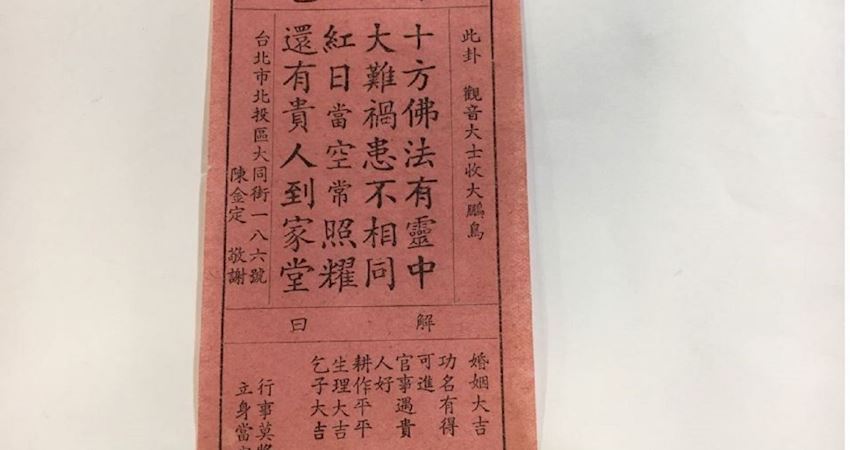 此卦 觀音大士收大鵬鳥
十方佛法有靈中
大難禍患不相同
紅日當空常照耀
還有貴人到家堂
台北市北投區大同街一八六號
陳金定 敬謝
解曰
婚姻大吉
功名有得
可進
官事遇貴
人好
耕作平平
生理大吉
乞子大吉
行事莫
立身當